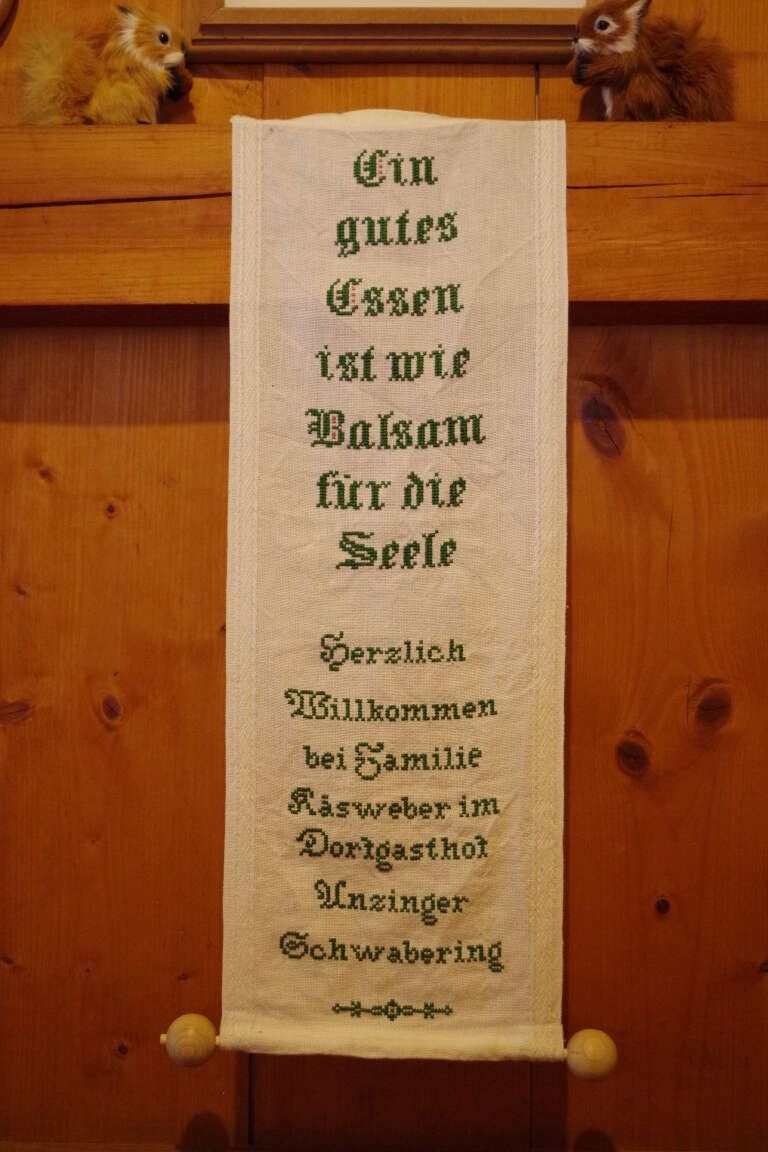 Ein
gutes
Essen
ist wie
Balsam
für die
Seele
Herzlich
Willkommen
bei Familie
Käsweber im
Dorfgasthof
Unzinger
Schwabering